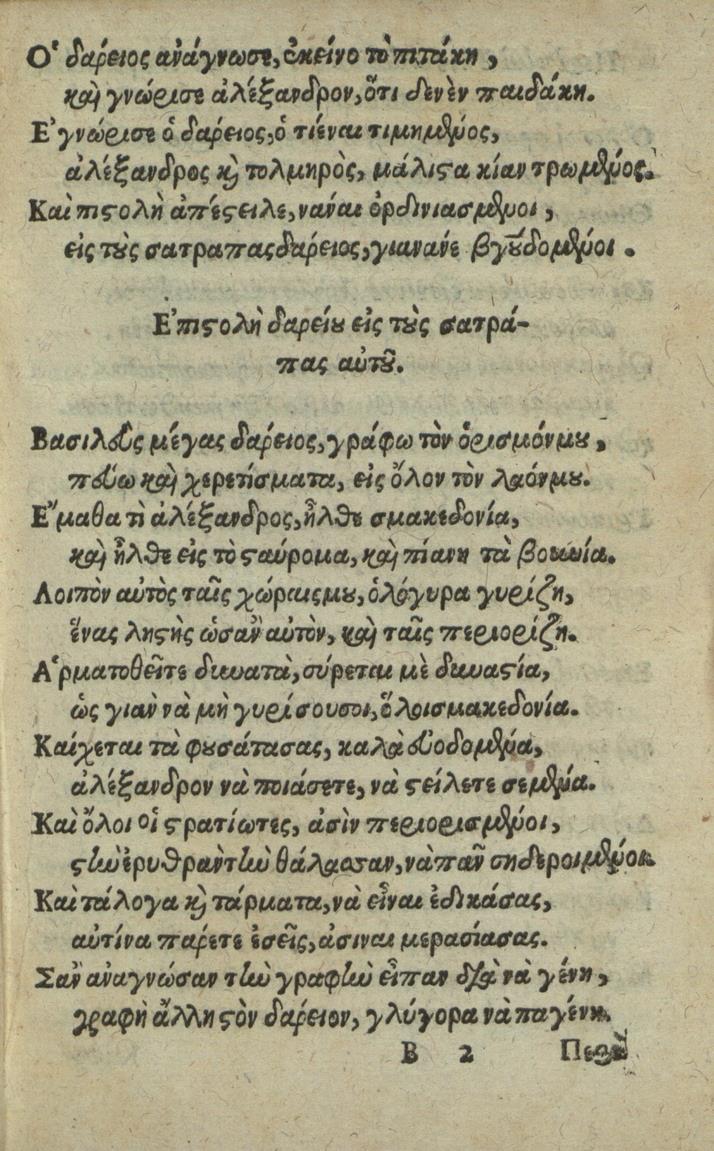 Ο῾ δαρειος ανάγνωσε, ἐκείνο τὸ πιτάκη,
καὶ γνώρισε ἀλέξανδρον, ὅτι δενὲν παιδάκη.
Ε᾿γνώρισε ὁ δαρειος, ὁ τιέναι τιμημένος,
ἀλέξανδρος κὶ τολμηρὸς, μάλιστα κίαν τρωμένος.
Καὶ πιστολὴ ἀπέστειλε, νάναι ὀρδινιασμένοι,
εἰς τοὺς σατραπας δαρειος, γιανανέ βγοῦδομένοι.
Ε᾿πιστολὴ δαρείου εἰς τοὺς σατρά-
πας αὐτοῦ.
Βασιλεὺς μέγας δαρειος, γράφω τὸν ὁρισμόνμου,
πεύω καὶ χερετίσματα, εἰς ὅλον τὸν λαόνμου.
Ε῎μαθα τὶ ἀλέξανδρος, ἦλθε σμακεδονία,
καὶ ἦλθε εἰς τὸ σταύρομα, καὶ πίανη τὰ βουνία.
Λοιπὸν αὐτὸς ταῖς χώραιςμου, ὁλόγυρα γυρίζη,
ἕνας ληστὴς ὡσαν αὐτὸν, καὶ ταῖς περιορίζη.
Α῾ρματοθεῖτε δυνατὰ, σύρεται μὲ δυναστία,
ὡς γιαν νὰ μὴ γυρίσουσοι, ὅλοι σμακεδονία.
Καίχεται τὰ φουσάτασας, καλὰ εὐοδομένα,
ἀλέξανδρον νὰ ποιάσετε, νὰ στείλετε σεμένα.
Καὶ ὅλοι οἱ στρατίωτες, ἀσὶν περιορισμένοι,
στὴν ἐρυθρὰν τὴν θάλασσαν, νὰ παν σηδεροιμένοι.
Καὶ τάλογα κὶ τάρματα, νὰ εἶναι ἐδικάσας,
αὐτίνα παρετε ἐσεῖς, ἀσιναι μερασίασας.
Σαν ἀναγνώσαν τὴν γραφὴν εἶπαν διὰ νὰ γένη,
γραφὴ ἄλλη στὸν δαρειον, γλύγορα νὰ παγένη.
Β 2